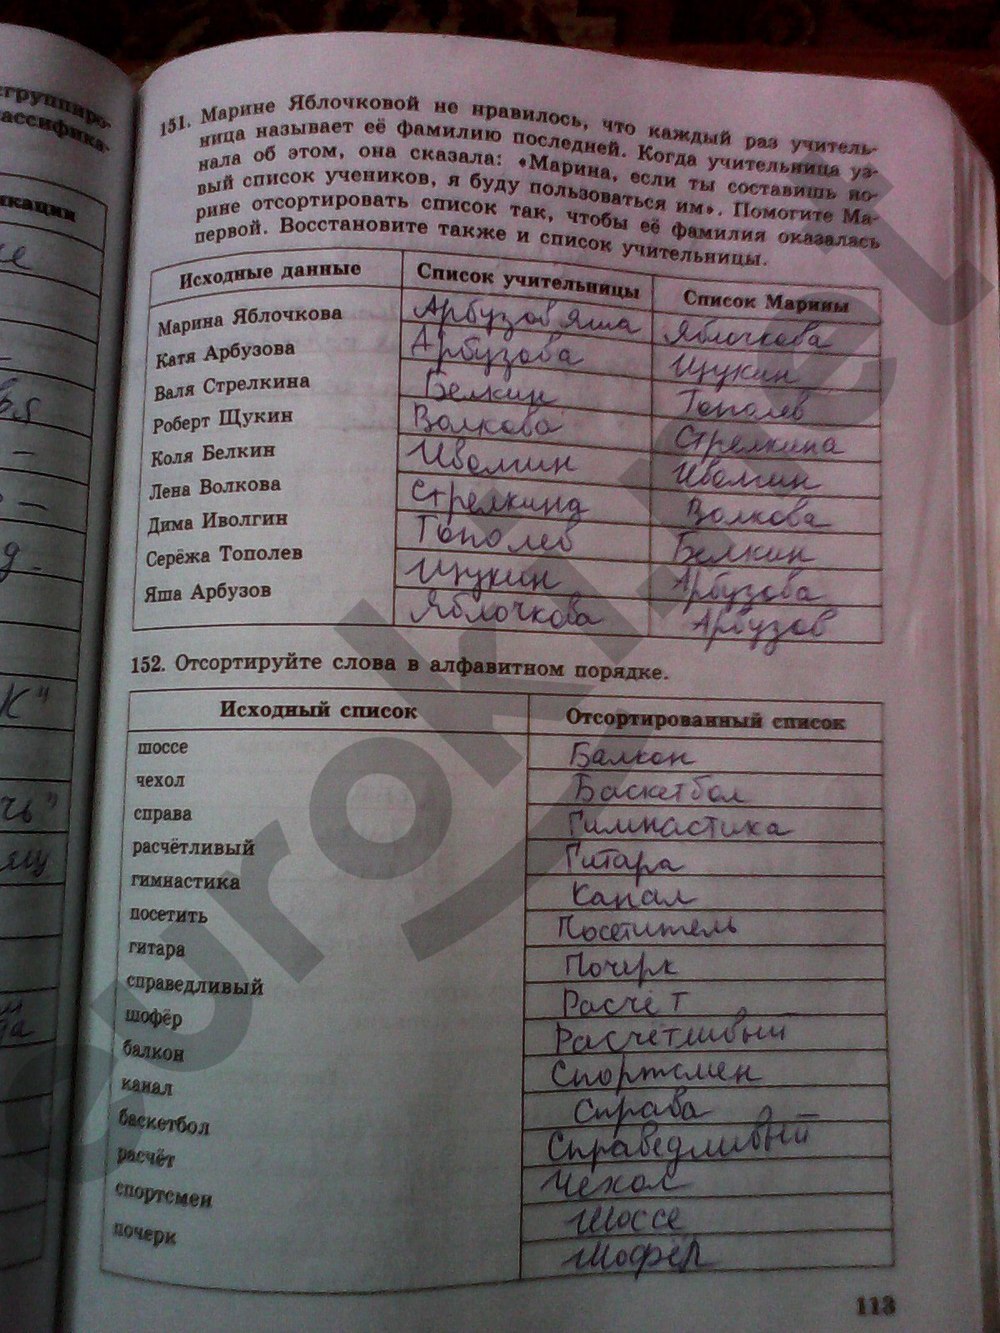 сгруппиро-
лассифика-
икации
151. Марине Яблочковой не нравилось, что каждый раз учитель-
ница называет её фамилию последней. Когда учительница уз-
нала об этом, она сказала: «Марина, если ты составишь но-
вый список учеников, я буду пользоваться им». Помогите Ма-
рине отсортировать список так, чтобы её фамилия оказалась
первой. Восстановите также и список учительницы.
Исходные данные Список учительницы Список Марины
Марина Яблочкова Арбузов Яша Яблочкова
Катя Арбузова Арбузова Щукин
Валя Стрелкина Белкин Тополев
Роберт Щукин Волкова Стрелкина
Коля Белкин Иволгин Иволгин
Лена Волкова Стрелкина Волкова
Дима Иволгин Тополев Белкин
Серёжа Тополев Щукин Арбузова
Яша Арбузов Яблочкова Арбузов
152. Отсортируйте слова в алфавитном порядке.
Исходный список Отсортированный список
шоссе Балкон
чехол Баскетбол
справа Гимнастика
расчётливый Гитара
гимнастика Канал
посетить Посетитель
гитара Почерк
справедливый Расчёт
шофёр Расчётливый
балкон Спортсмен
канал Справа
баскетбол Справедливый
расчёт Чехол
спортсмен Шоссе
почерк Шофёр
113
euroki.net